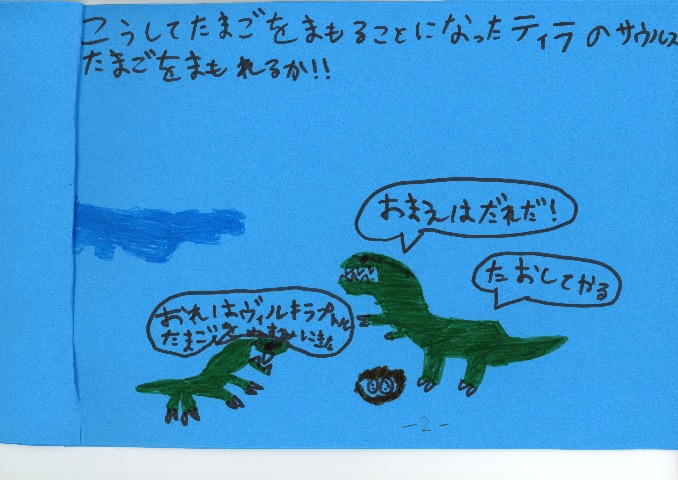 こうしてたまごをまもることになったティラのサウルス
たまごをまもれるか!!
おまえはだれだ!
たおしてやる
おれはヴィルキラプトル
たまご
にきた
-2-